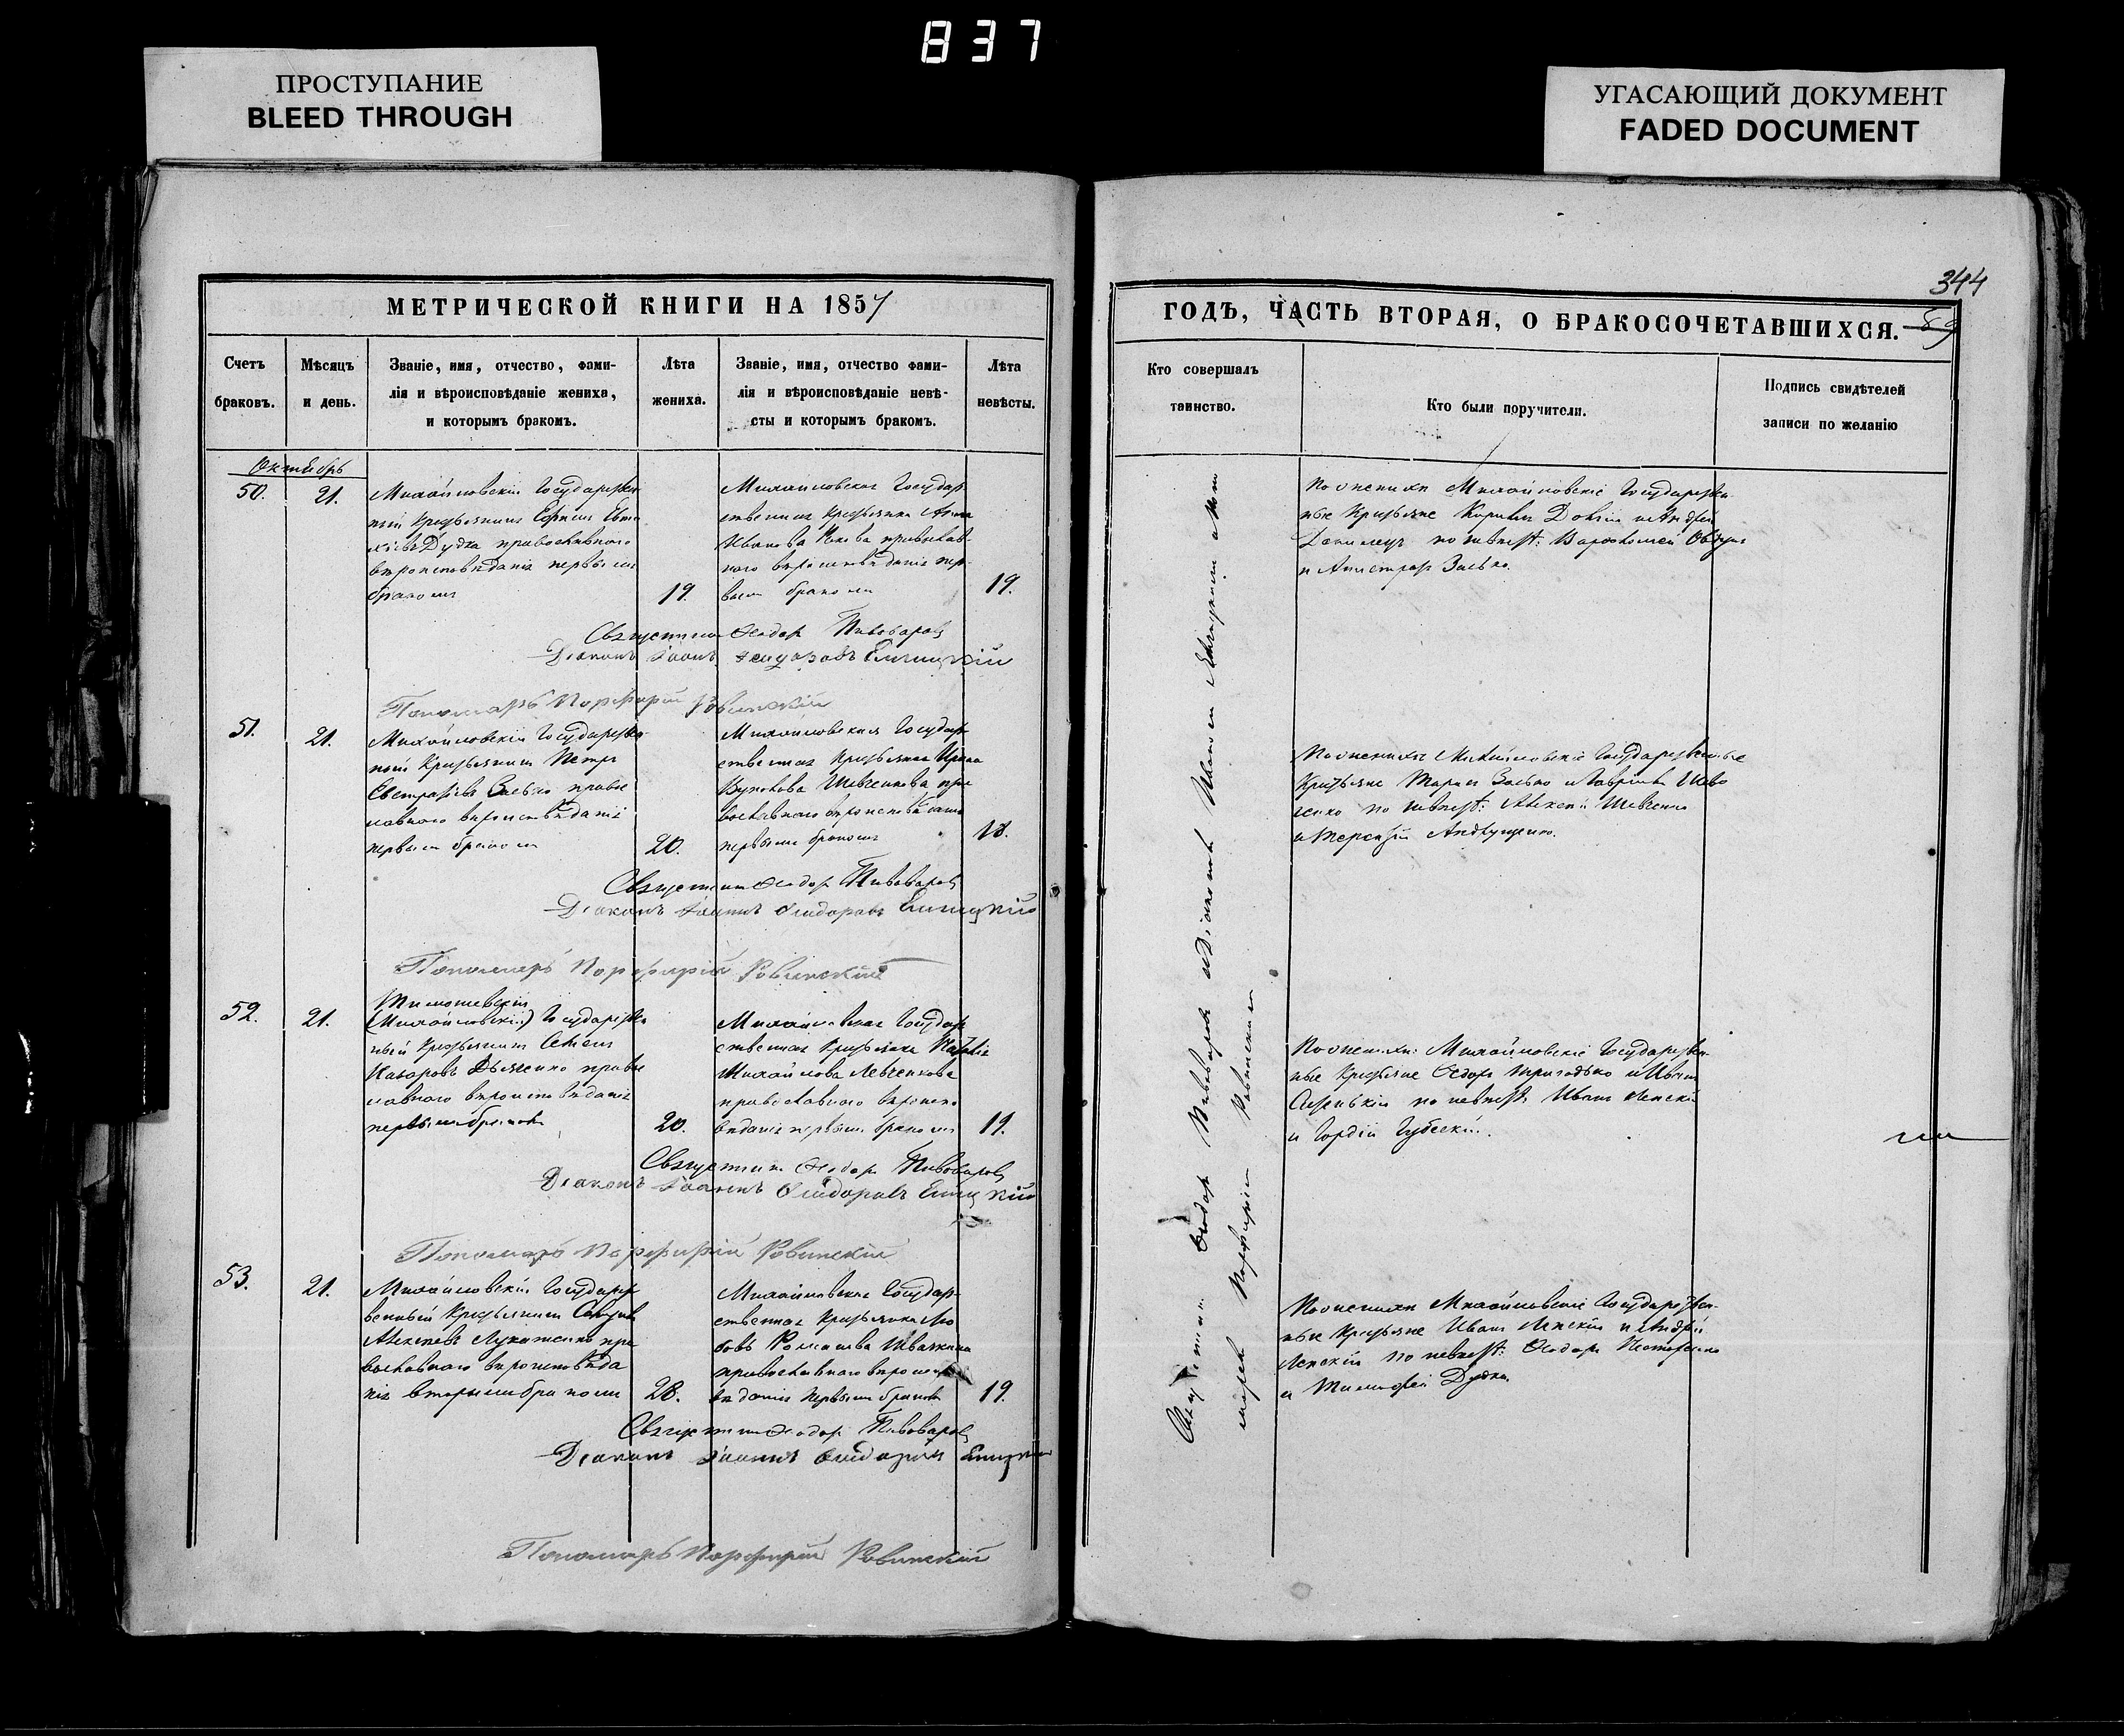 837
ПРОСТУПАНИЕ
BLEED THROUGH
УГАСАЮЩИЙ ДОКУМЕНТ
FADED DOCUMENT
МЕТРИЧЕСКОЙ КНИГИ НА 1857
Счетъ браковъ.
Мѣсяцъ и день.
Званіе, имя, отчество, фами-
лія и вѣроисповѣданіе жениха,
и которымъ бракомъ.
Лѣта жениха.
Званіе, имя, отчество фами-
лія и вѣроисповѣданіе невѣ-
сты и которымъ бракомъ.
Лѣта невѣсты.
Октябрь
50.
21.
Михайловскій Государствен
ный Крестьянинъ
Дудка православнаго
вѣроисповѣданія первымъ
бракомъ
19.
Михайловская Государ
ственная Крестьянка Анна
Иванова православ
наго вѣроисповѣданія пер
вымъ бракомъ
19.
Священникъ Ѳеодоръ Пивоваровъ
Діаконъ Іоаннъ
Пономарь Порфирій Ровинскій
51.
21.
Михайловскій Государствен
ный Крестьянинъ Петръ
Евстратіевъ Заево правос
лавнаго вѣроисповѣданія
первымъ бракомъ
20.
Михайловская Государ
ственная Крестьянка Ирина
Шевченкова пра
вославнаго вѣроисповѣданія
первымъ бракомъ
18.
Священникъ Ѳеодоръ Пивоваровъ
Діаконъ Іоаннъ Ѳеодоровъ
Пономарь Порфирій Ровинскій
52.
21.
Тимошевскій
(Михайловскій) Государствен
ный Крестьянинъ Семенъ
Назаровъ Дьяченко правос
лавнаго вѣроисповѣданія
первымъ бракомъ
20.
Михайловская Государ
ственная Крестьянка Наталія
Михайлова Левченкова
православнаго вѣроиспо
вѣданія первымъ бракомъ
19.
Священникъ Ѳеодоръ Пивоваровъ
Діаконъ Іоаннъ Ѳеодоровъ
Пономарь Порфирій Ровинскій
53.
21.
Михайловскій Государст
венный Крестьянинъ
Алексѣевъ Лукашенко пра
вославнаго вѣроисповѣда
нія вторымъ бракомъ
28.
Михайловская Государ
ственная Крестьянка Лю
бовь Романова Ивахнина
православнаго вѣроиспо
вѣданія первымъ бракомъ
19.
Священникъ Ѳеодоръ Пивоваровъ
Діаконъ Іоаннъ Ѳеодоровъ
Пономарь Порфирій Ровинскій
344
59
ГОДЪ, ЧАСТЬ ВТОРАЯ, О БРАКОСОЧЕТАВШИХСЯ.
Кто совершалъ таинство.
Кто были поручители.
Подпись свидѣтелей
записи по желанію
Священникъ Ѳеодоръ Пивоваровъ и Діаконъ Иваномъ
Порфиріемъ Ровинскимъ
По женихѣ Михайловскіе Государствен
ные Крестьяне Кириллъ Довгій и Андрей
Данилецъ по невѣст: Варѳоломей
и Заево.
По женихѣ Михайловскіе Государственные
Крестьяне Заево и
по невѣст: Алексѣй Шевченко
и Терентій Андрущенко.
По женихѣ: Михайловскіе Государствен
ные Крестьяне Ѳедоръ и Иванъ
по невѣстѣ Иванъ Ленскій
и Гордій
По женихѣ Михайловскіе Государствен
ные Крестьяне Иванъ Ленскій и Андрей
Ленскій по невѣст: Ѳеодоръ Нестеренко
и Тимофей Дудка.